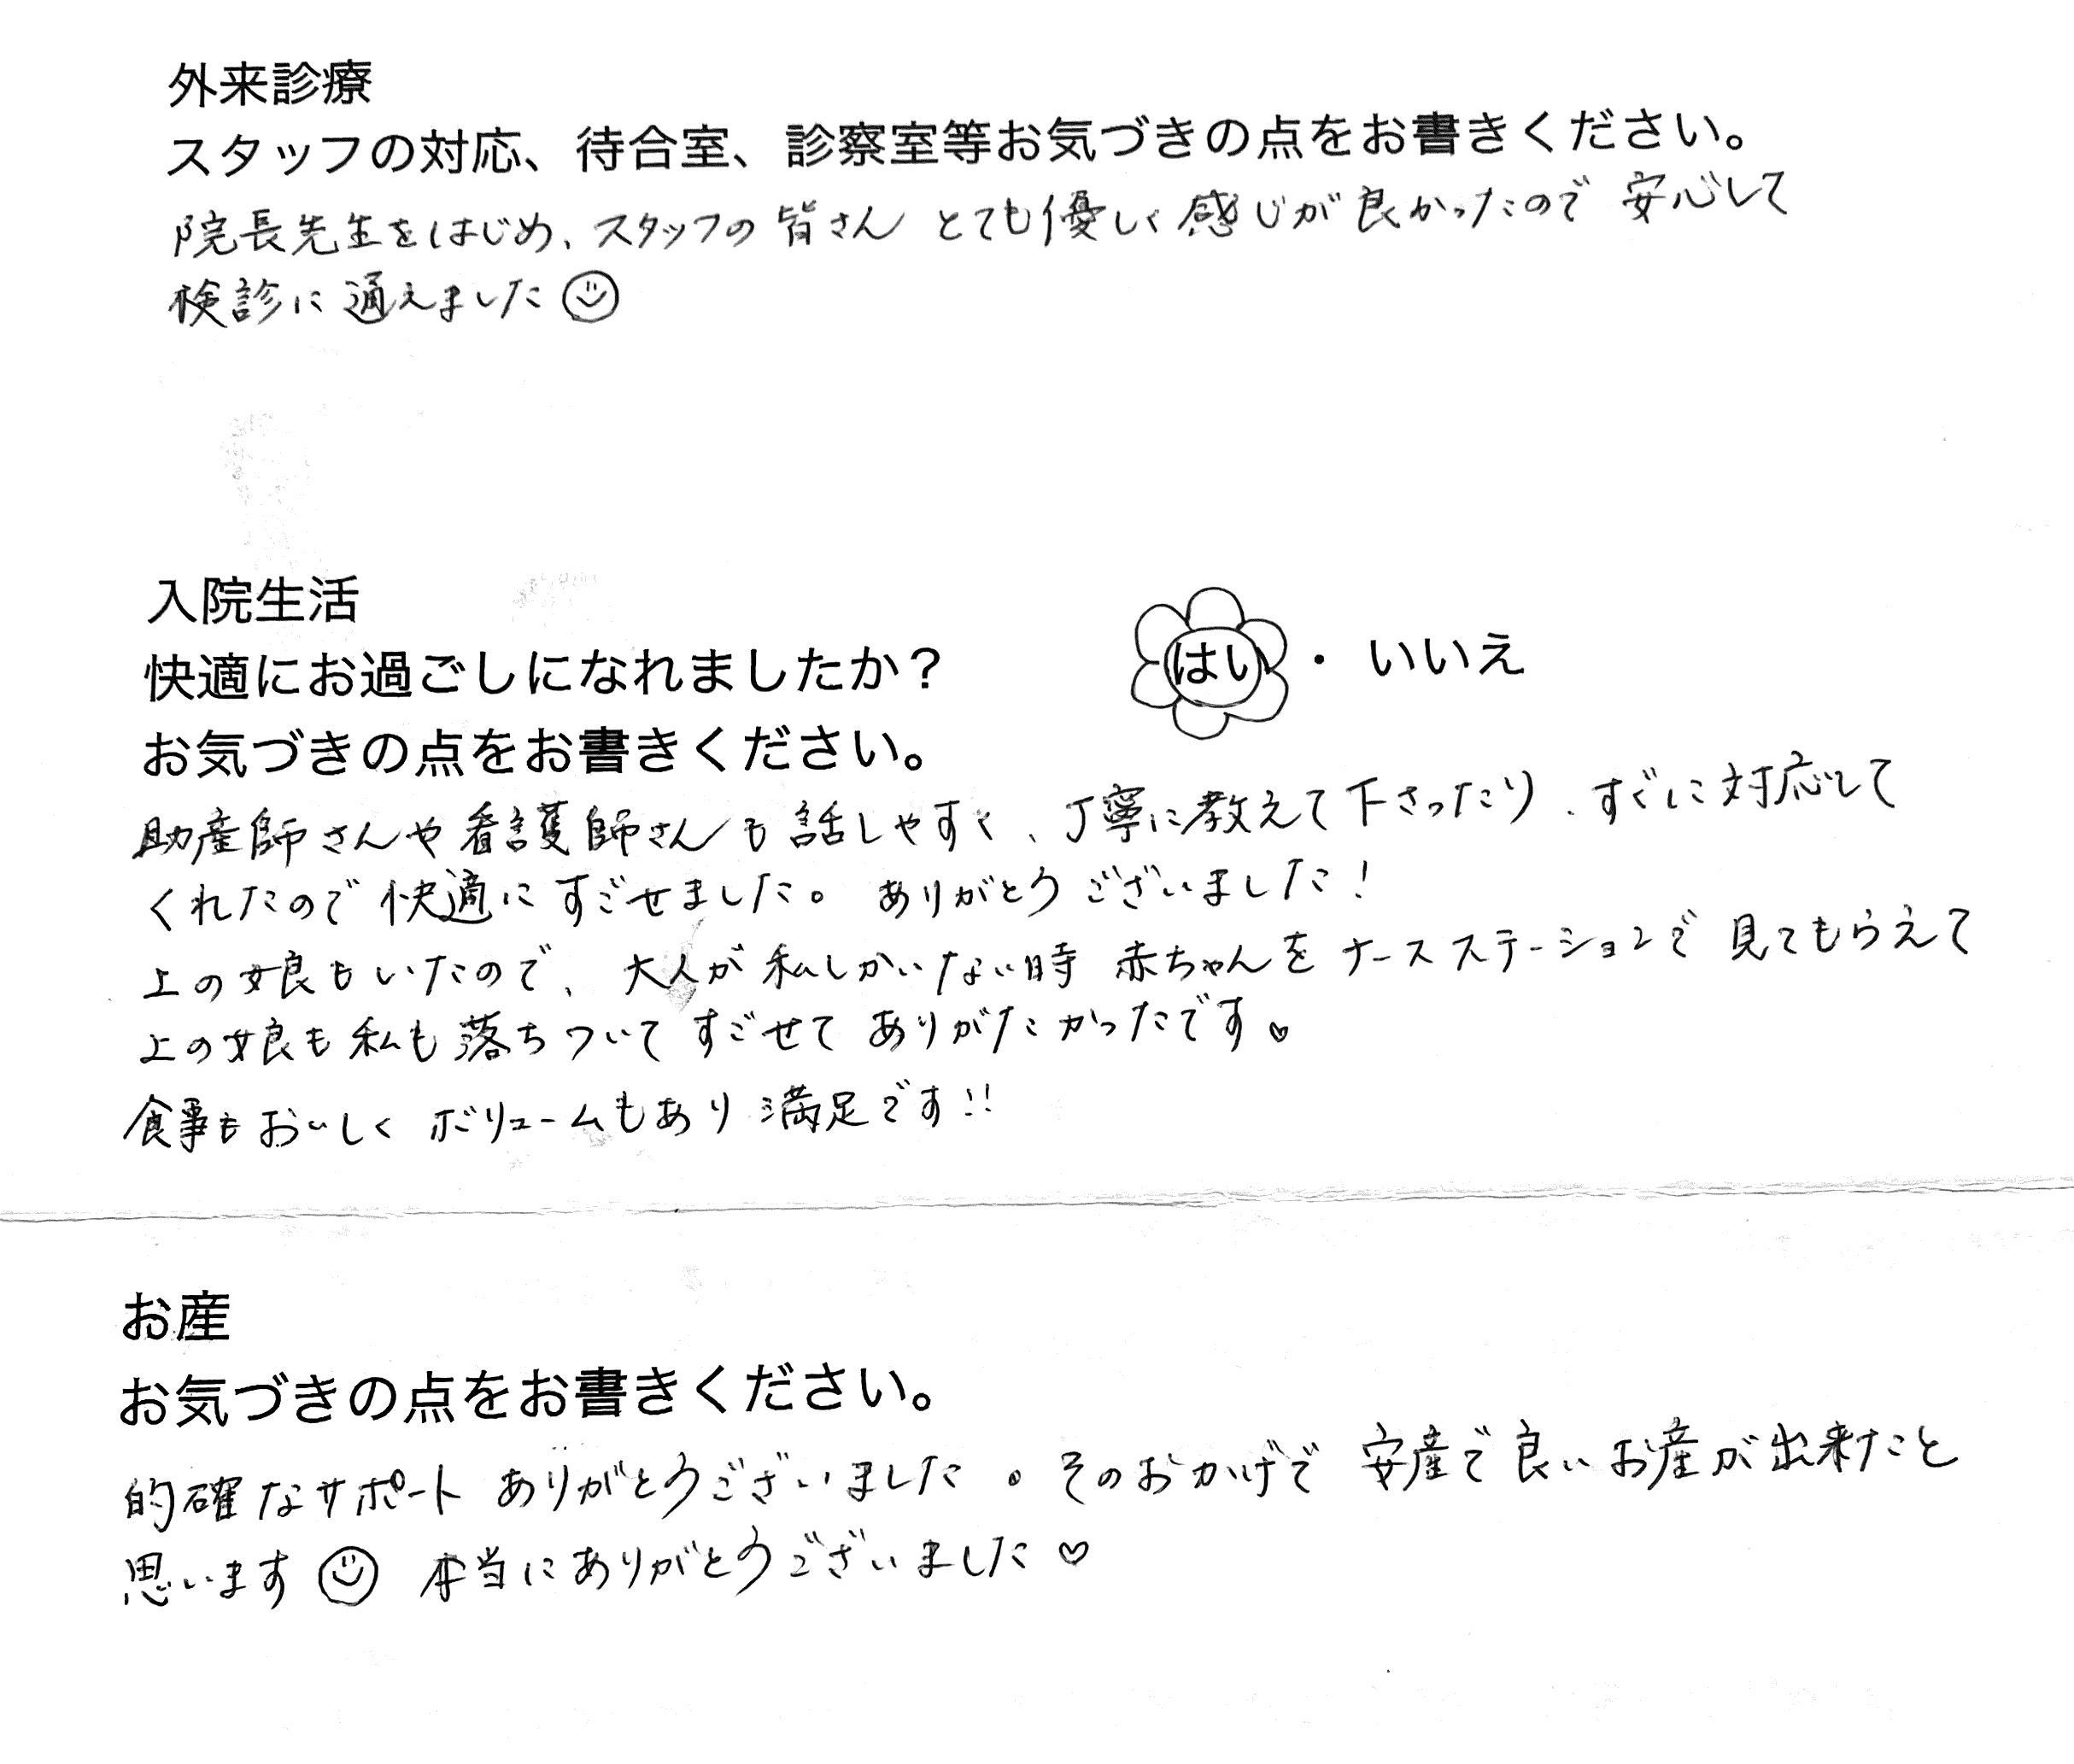 外来診療
スタッフの対応、待合室、診察室等お気づきの点をお書きください。
院長先生をはじめ、スタッフの皆さん とても優しく感じが良かったので 安心して
検診に通えました
入院生活
快適にお過ごしになれましたか? はい・いいえ
お気づきの点をお書きください。
助産師さんや看護師さんも話しやすく、丁寧に教えて下さったり、すぐに対応して
くれたので快適にすごせました。ありがとうございました!
上の娘もいたので、大人が私しかいない時 赤ちゃんをナースステーションで見てもらえて
上の娘も私も落ちついてすごせてありがたかったです♡
食事もおいしくボリュームもあり満足です!!
お産
お気づきの点をお書きください。
的確なサポートありがとうございました。そのおかげで 安産で良いお産が出来たと
思います 本当にありがとうございました♡